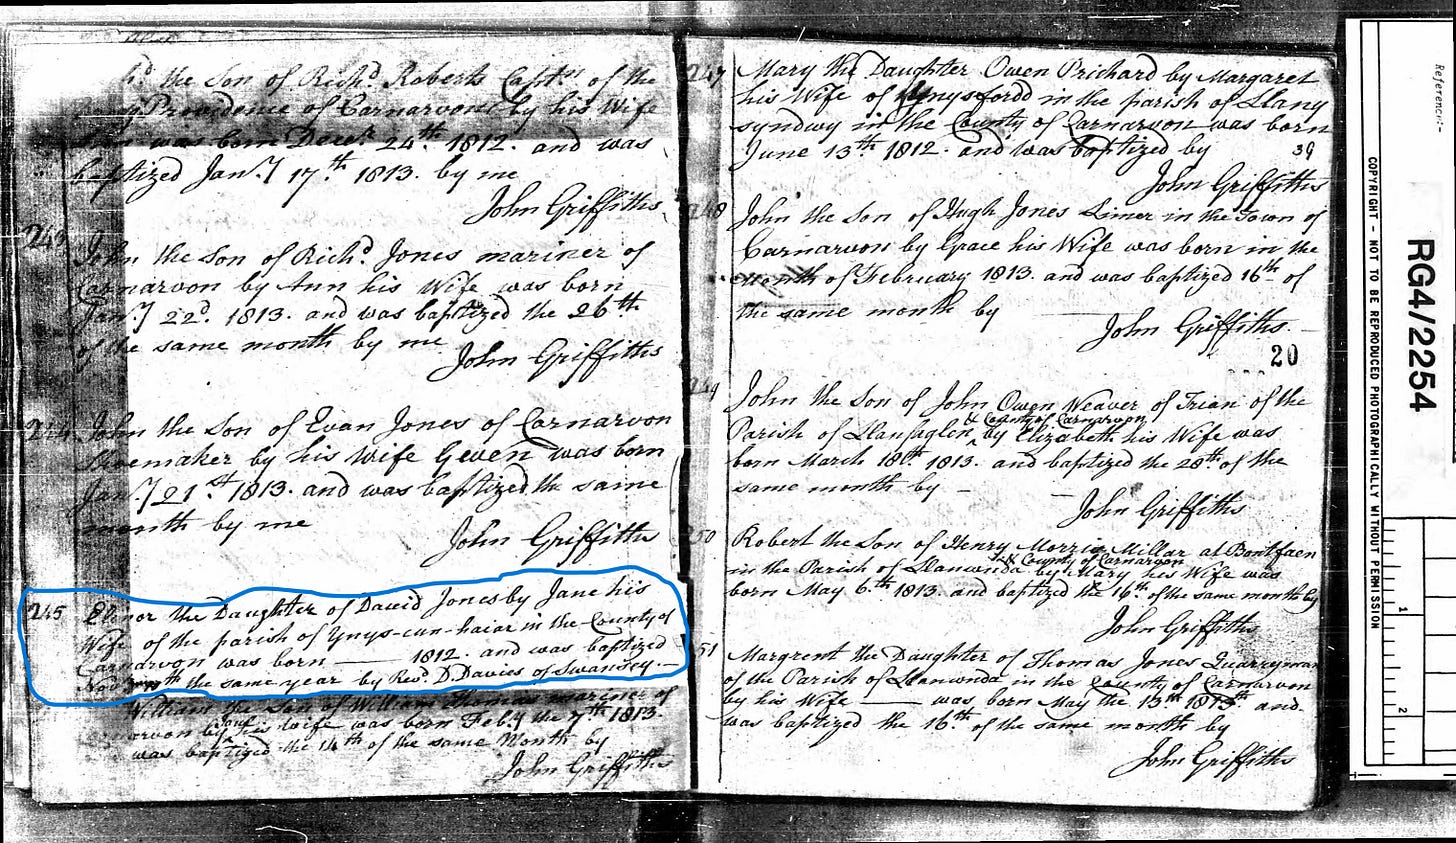 the Son of Rich.d Roberts Capt.n of the
Providence of Carnarvon by his Wife
was born Dec.r 24.th 1812. and was
baptized Jan.y 17.th 1813. by me
John Griffiths
243
John the Son of Rich.d Jones mariner of
Carnarvon by Ann his Wife was born
Jan.y 22.d 1813. and was baptized the 26th
of the same month by me
John Griffiths
244 John the Son of Evan Jones of Carnarvon
Shoemaker by his Wife Gwen was born
Jan.y 21.st 1813. and was baptized the same
month by me
John Griffiths
245 Elenor the Daughter of David Jones by Jane his
Wife of the parish of Ynys-cun-haiar in the County of
Carnarvon was born —— 1812. and was baptized
Nov the same year by Rev.d D. Davies of Swansey. —
William the Son of William Thomas mariner of
by Jane his Wife was born Feb.y the 7th 1813.
was baptized the 14th of the same Month by
John Griffiths
247 Mary the Daughter Owen Prichard by Margaret
his Wife of in the parish of Llany
syndwy in the County of Carnarvon was born
June 13th 1812. and was baptized by
39
John Griffiths
248 John the Son of Hugh Jones Limer in the Town of
Carnarvon by Grace his Wife was born in the
Month of February 1813. and was baptized 16th of
the same month by ——
John Griffiths.
20
249
John the Son of John Owen Weaver of Trian of the
& County of Carnarvon
Parish of Llanfaglen ^ by Elizabeth his Wife was
born March 18th 1813. and baptized the 28th of the
same month by —
John Griffiths
250 Robert the Son of Henry Morris Millar at Bontfaen
& County of Carnarvon
in the Parish of Llanwnda by Mary his Wife was
born May 6th 1813. and baptized the 16th of the same month by
John Griffiths
51 Margrent the Daughter of Thomas Jones Quarryman
of the Parish of Llanwnda in the County of Carnarvon
by his Wife —— was born May the 13th 1813 and
was baptized the 16th of the same month by
John Griffiths
Reference:-
RG4/2254
COPYRIGHT - NOT TO BE REPRODUCED PHOTOGRAPHICALLY WITHOUT PERMISSION
1
2